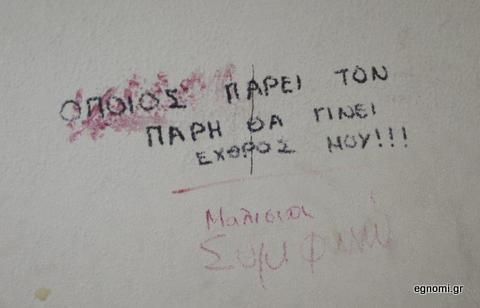 ΟΠΟΙΟΣ ΠΑΡΕΙ ΤΟΝ
ΠΑΡΗ ΘΑ ΓΙΝΕΙ
ΕΧΘΡΟΣ ΜΟΥ!!!
egnomi.gr